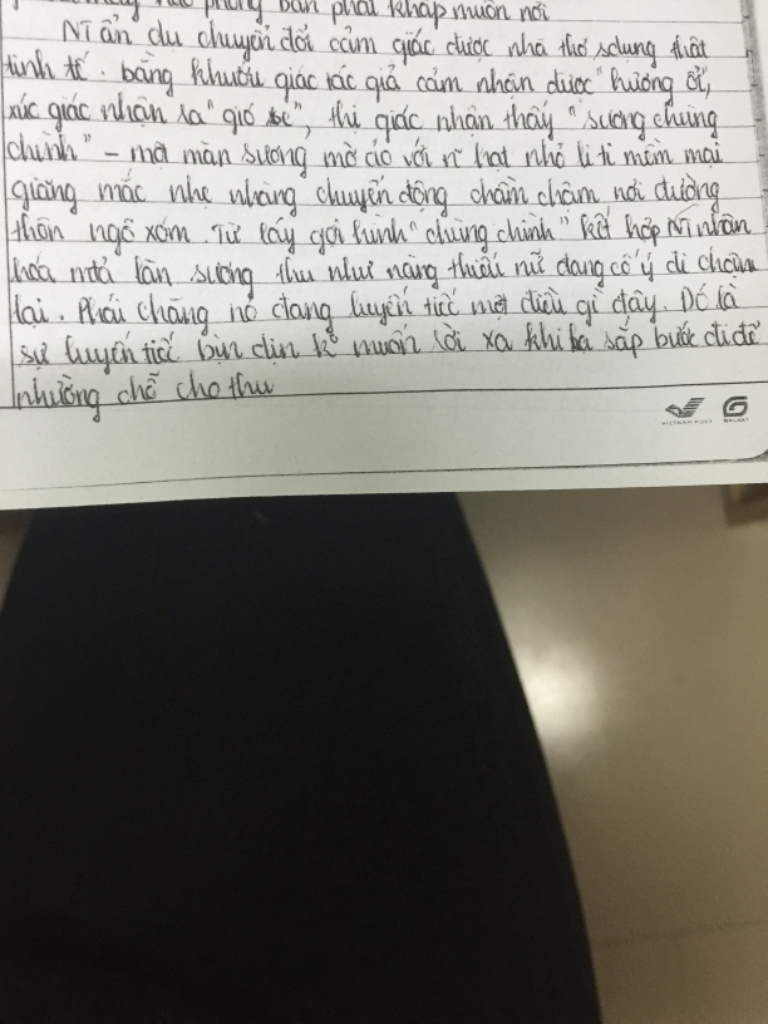 phòng ban phải khắp muôn nơi
NT ẩn dụ chuyển đổi cảm giác được nhà thơ sdụng thật
tinh tế. bằng khướu giác tác giả cảm nhận được "hương ổi",
xúc giác nhận ra "gió se", thị giác nhận thấy "sương chùng
chình" - một màn sương mờ ảo với n~ hạt nhỏ li ti mềm mại
giăng mắc nhẹ nhàng chuyển động chầm chậm nơi đường
thôn ngõ xóm. Từ láy gợi hình "chùng chình" kết hợp NT nhân
hóa mtả làn sương thu như nàng thiếu nữ đang cố ý đi chậm
lại. Phải chăng nó đang luyến tiếc một điều gì đấy. Đó là
sự luyến tiếc bịn dịn k° muốn rời xa khi hạ sắp bước đi để
nhường chỗ cho thu
VIETNAM POST